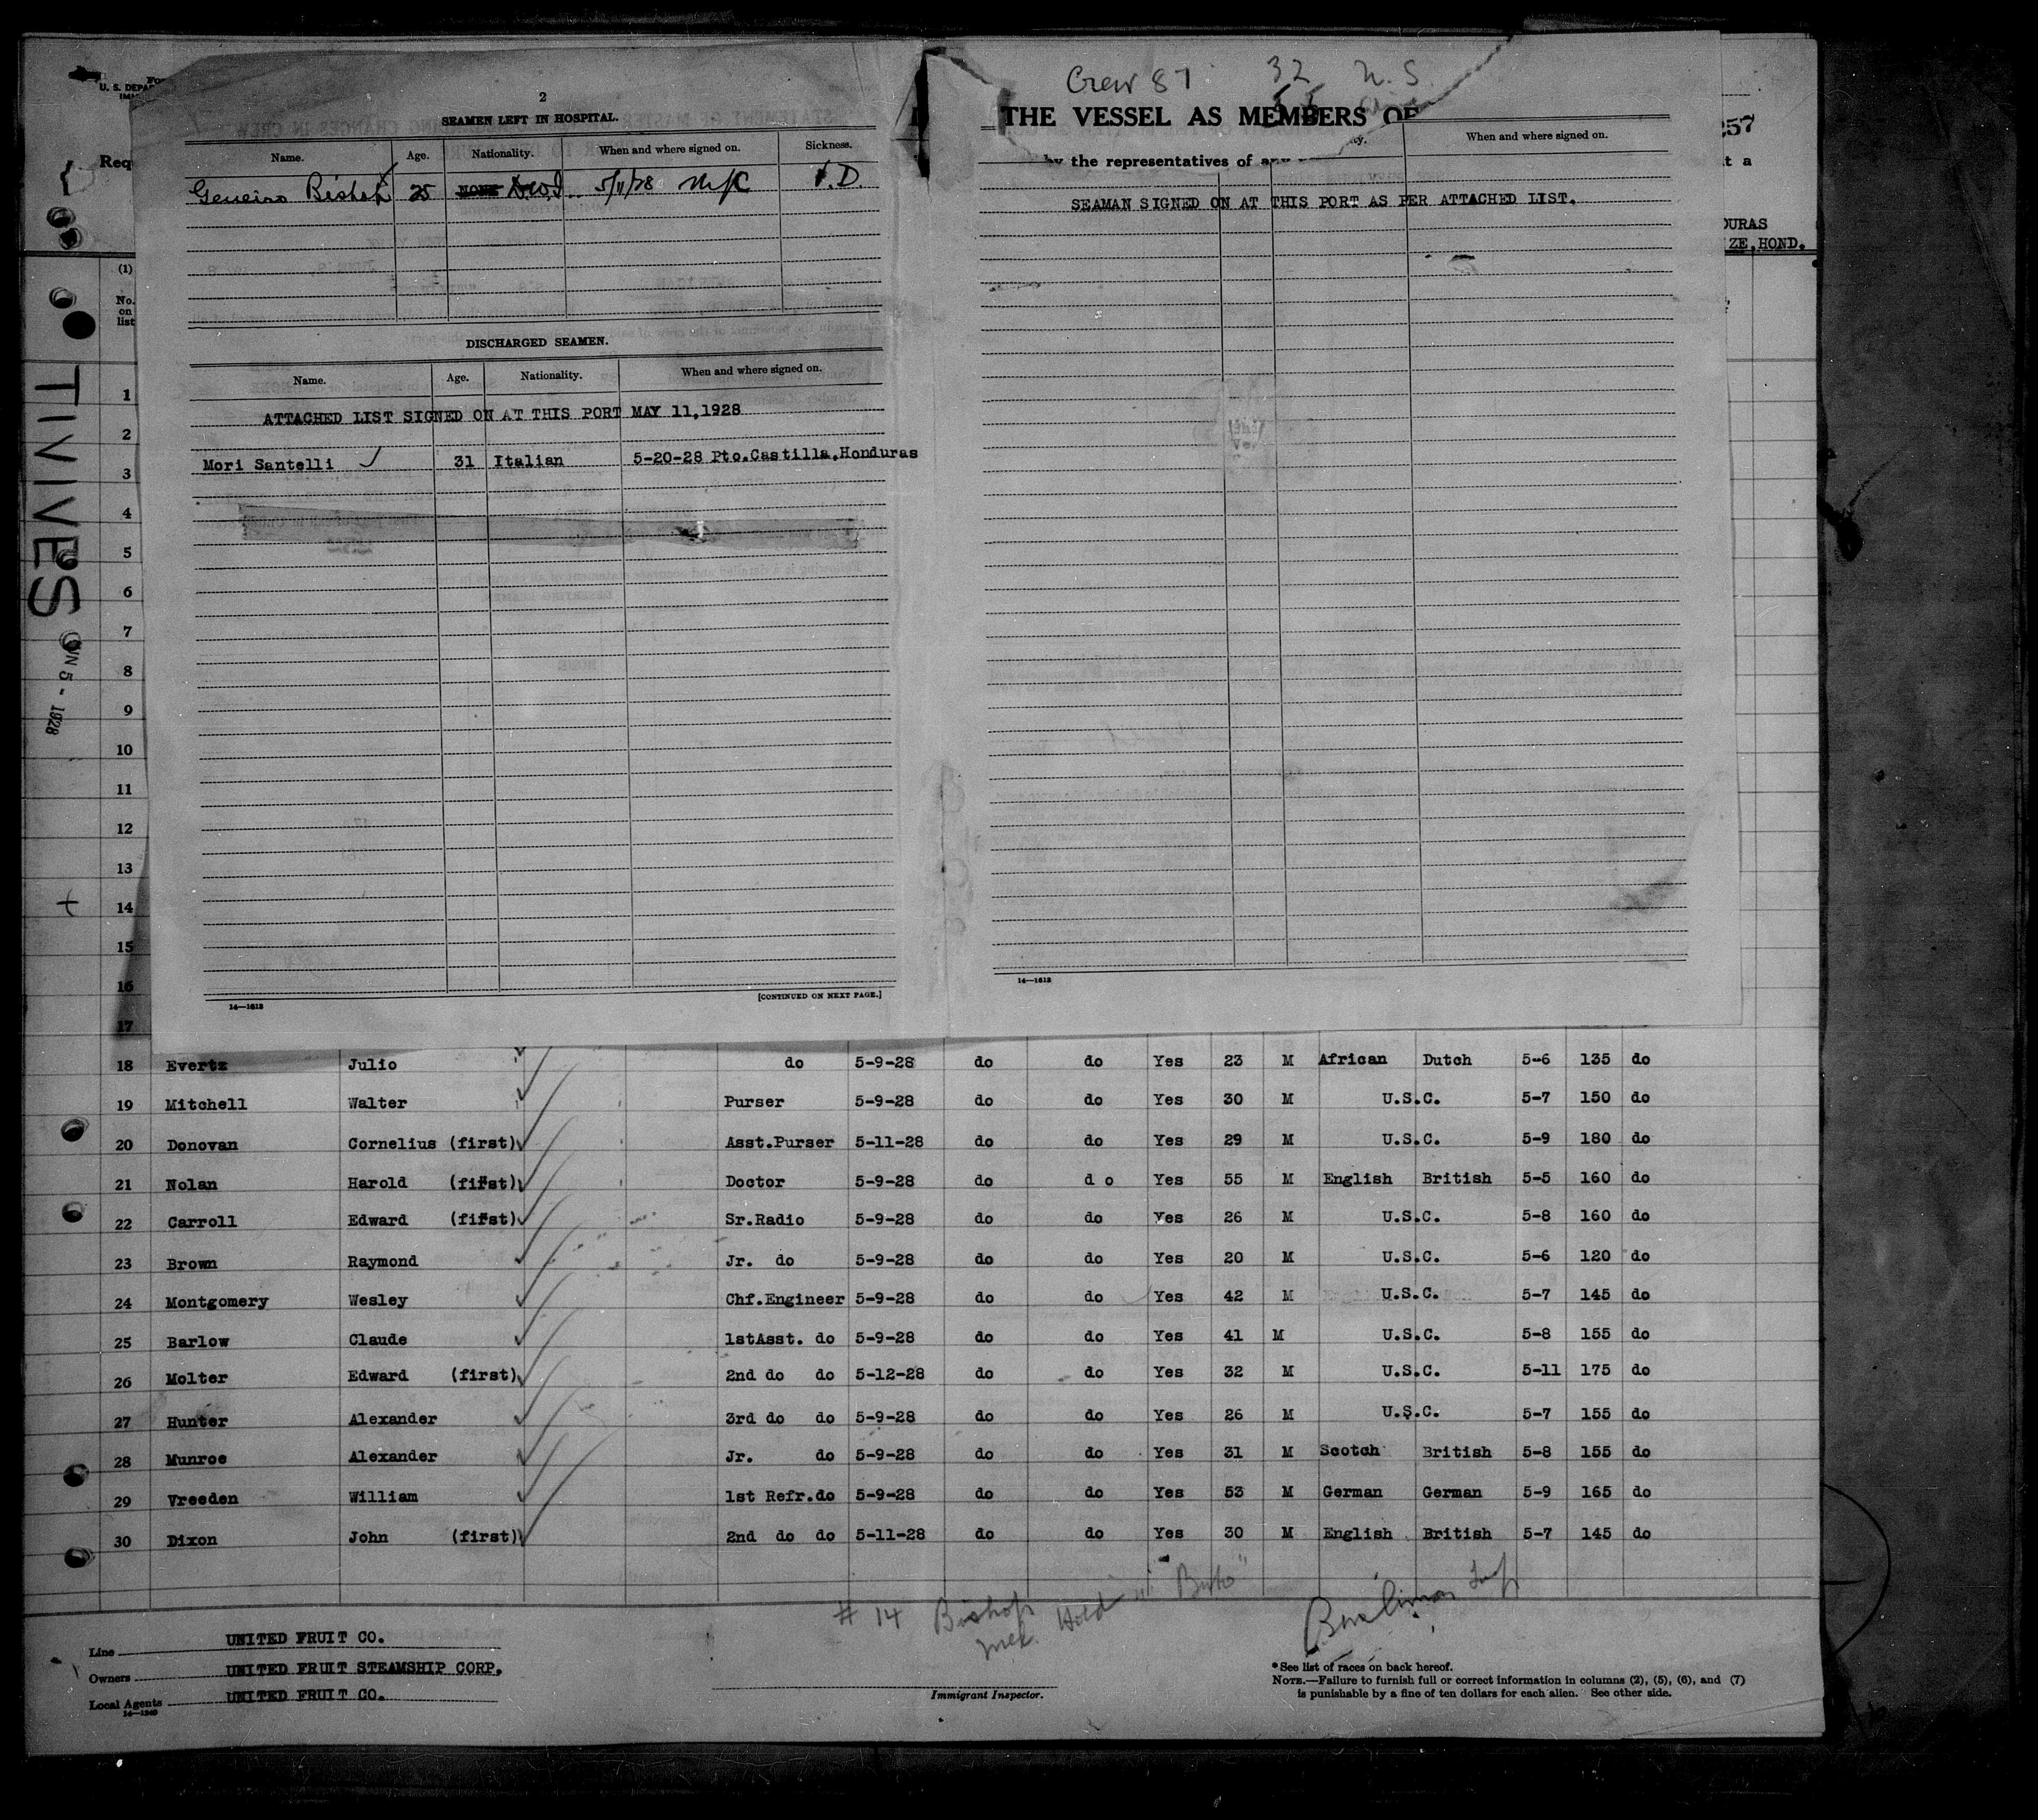 Crew 87 32 U.S.
THE VESSEL AS MEMBERS OF
by the representatives of any
When and where signed on.
SEAMAN SIGNED ON AT THIS PORT AS PER ATTACHED LIST.
14—1613
2
SEAMEN LEFT IN HOSPITAL.
Name. Age. Nationality. When and where signed on. Sickness.
Bishop 25 NONE D.W.I. 5/11/28 V.D.
DISCHARGED SEAMEN.
Name. Age. Nationality. When and where signed on.
ATTACHED LIST SIGNED ON AT THIS PORT MAY 11,1928
Mori Santelli 31 Italian 5-20-28 Pto.Castilla.Honduras
14—1613 [CONTINUED ON NEXT PAGE.]
U. S. DEPA
Req
257
t a
DURAS
ZE,HOND.
(1)
No.
on
list
TIVIVES
UN 5 - 1928
1
2
3
4
5
6
7
8
9
10
11
12
13
14
15
16
17
18 Evertz Julio do 5-9-28 do do Yes 23 M African Dutch 5-6 135 do
19 Mitchell Walter Purser 5-9-28 do do Yes 30 M U.S.C. 5-7 150 do
20 Donovan Cornelius (first) Asst.Purser 5-11-28 do do Yes 29 M U.S.C. 5-9 180 do
21 Nolan Harold (first) Doctor 5-9-28 do d o Yes 55 M English British 5-5 160 do
22 Carroll Edward (first) Sr.Radio 5-9-28 do do Yes 26 M U.S.C. 5-8 160 do
23 Brown Raymond Jr. do 5-9-28 do do Yes 20 M U.S.C. 5-6 120 do
24 Montgomery Wesley Chf.Engineer 5-9-28 do do Yes 42 M U.S.C. 5-7 145 do
25 Barlow Claude 1stAsst. do 5-9-28 do do Yes 41 M U.S.C. 5-8 155 do
26 Molter Edward (first) 2nd do do 5-12-28 do do Yes 32 M U.S.C. 5-11 175 do
27 Hunter Alexander 3rd do do 5-9-28 do do Yes 26 M U.S.C. 5-7 155 do
28 Munroe Alexander Jr. do 5-9-28 do do Yes 31 M Scotch British 5-8 155 do
29 Vreeden William 1st Refr.do 5-9-28 do do Yes 53 M German German 5-9 165 do
30 Dixon John (first) 2nd do do 5-11-28 do do Yes 30 M English British 5-7 145 do
# 14 Bishop Hold
Line UNITED FRUIT CO.
Owners UNITED FRUIT STEAMSHIP CORP.
Local Agents UNITED FRUIT CO.
14—1240
Immigrant Inspector.
*See list of races on back hereof.
NOTE.—Failure to furnish full or correct information in columns (2), (5), (6), and (7)
is punishable by a fine of ten dollars for each alien. See other side.